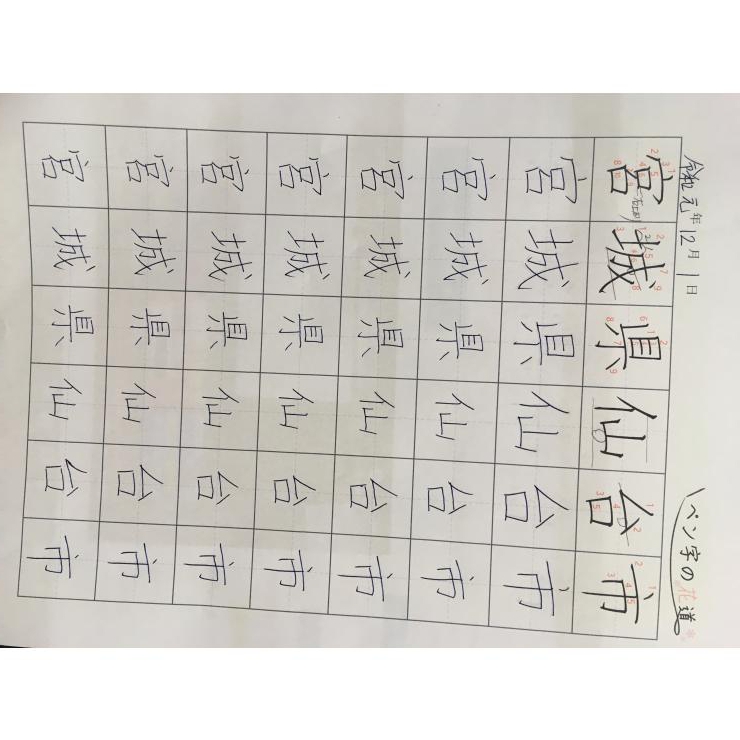 令和元年12月1日
ペン字の花道
宮城県仙台市
宮城県仙台市
宮城県仙台市
宮城県仙台市
宮城県仙台市
宮城県仙台市
宮城県仙台市
宮城県仙台市